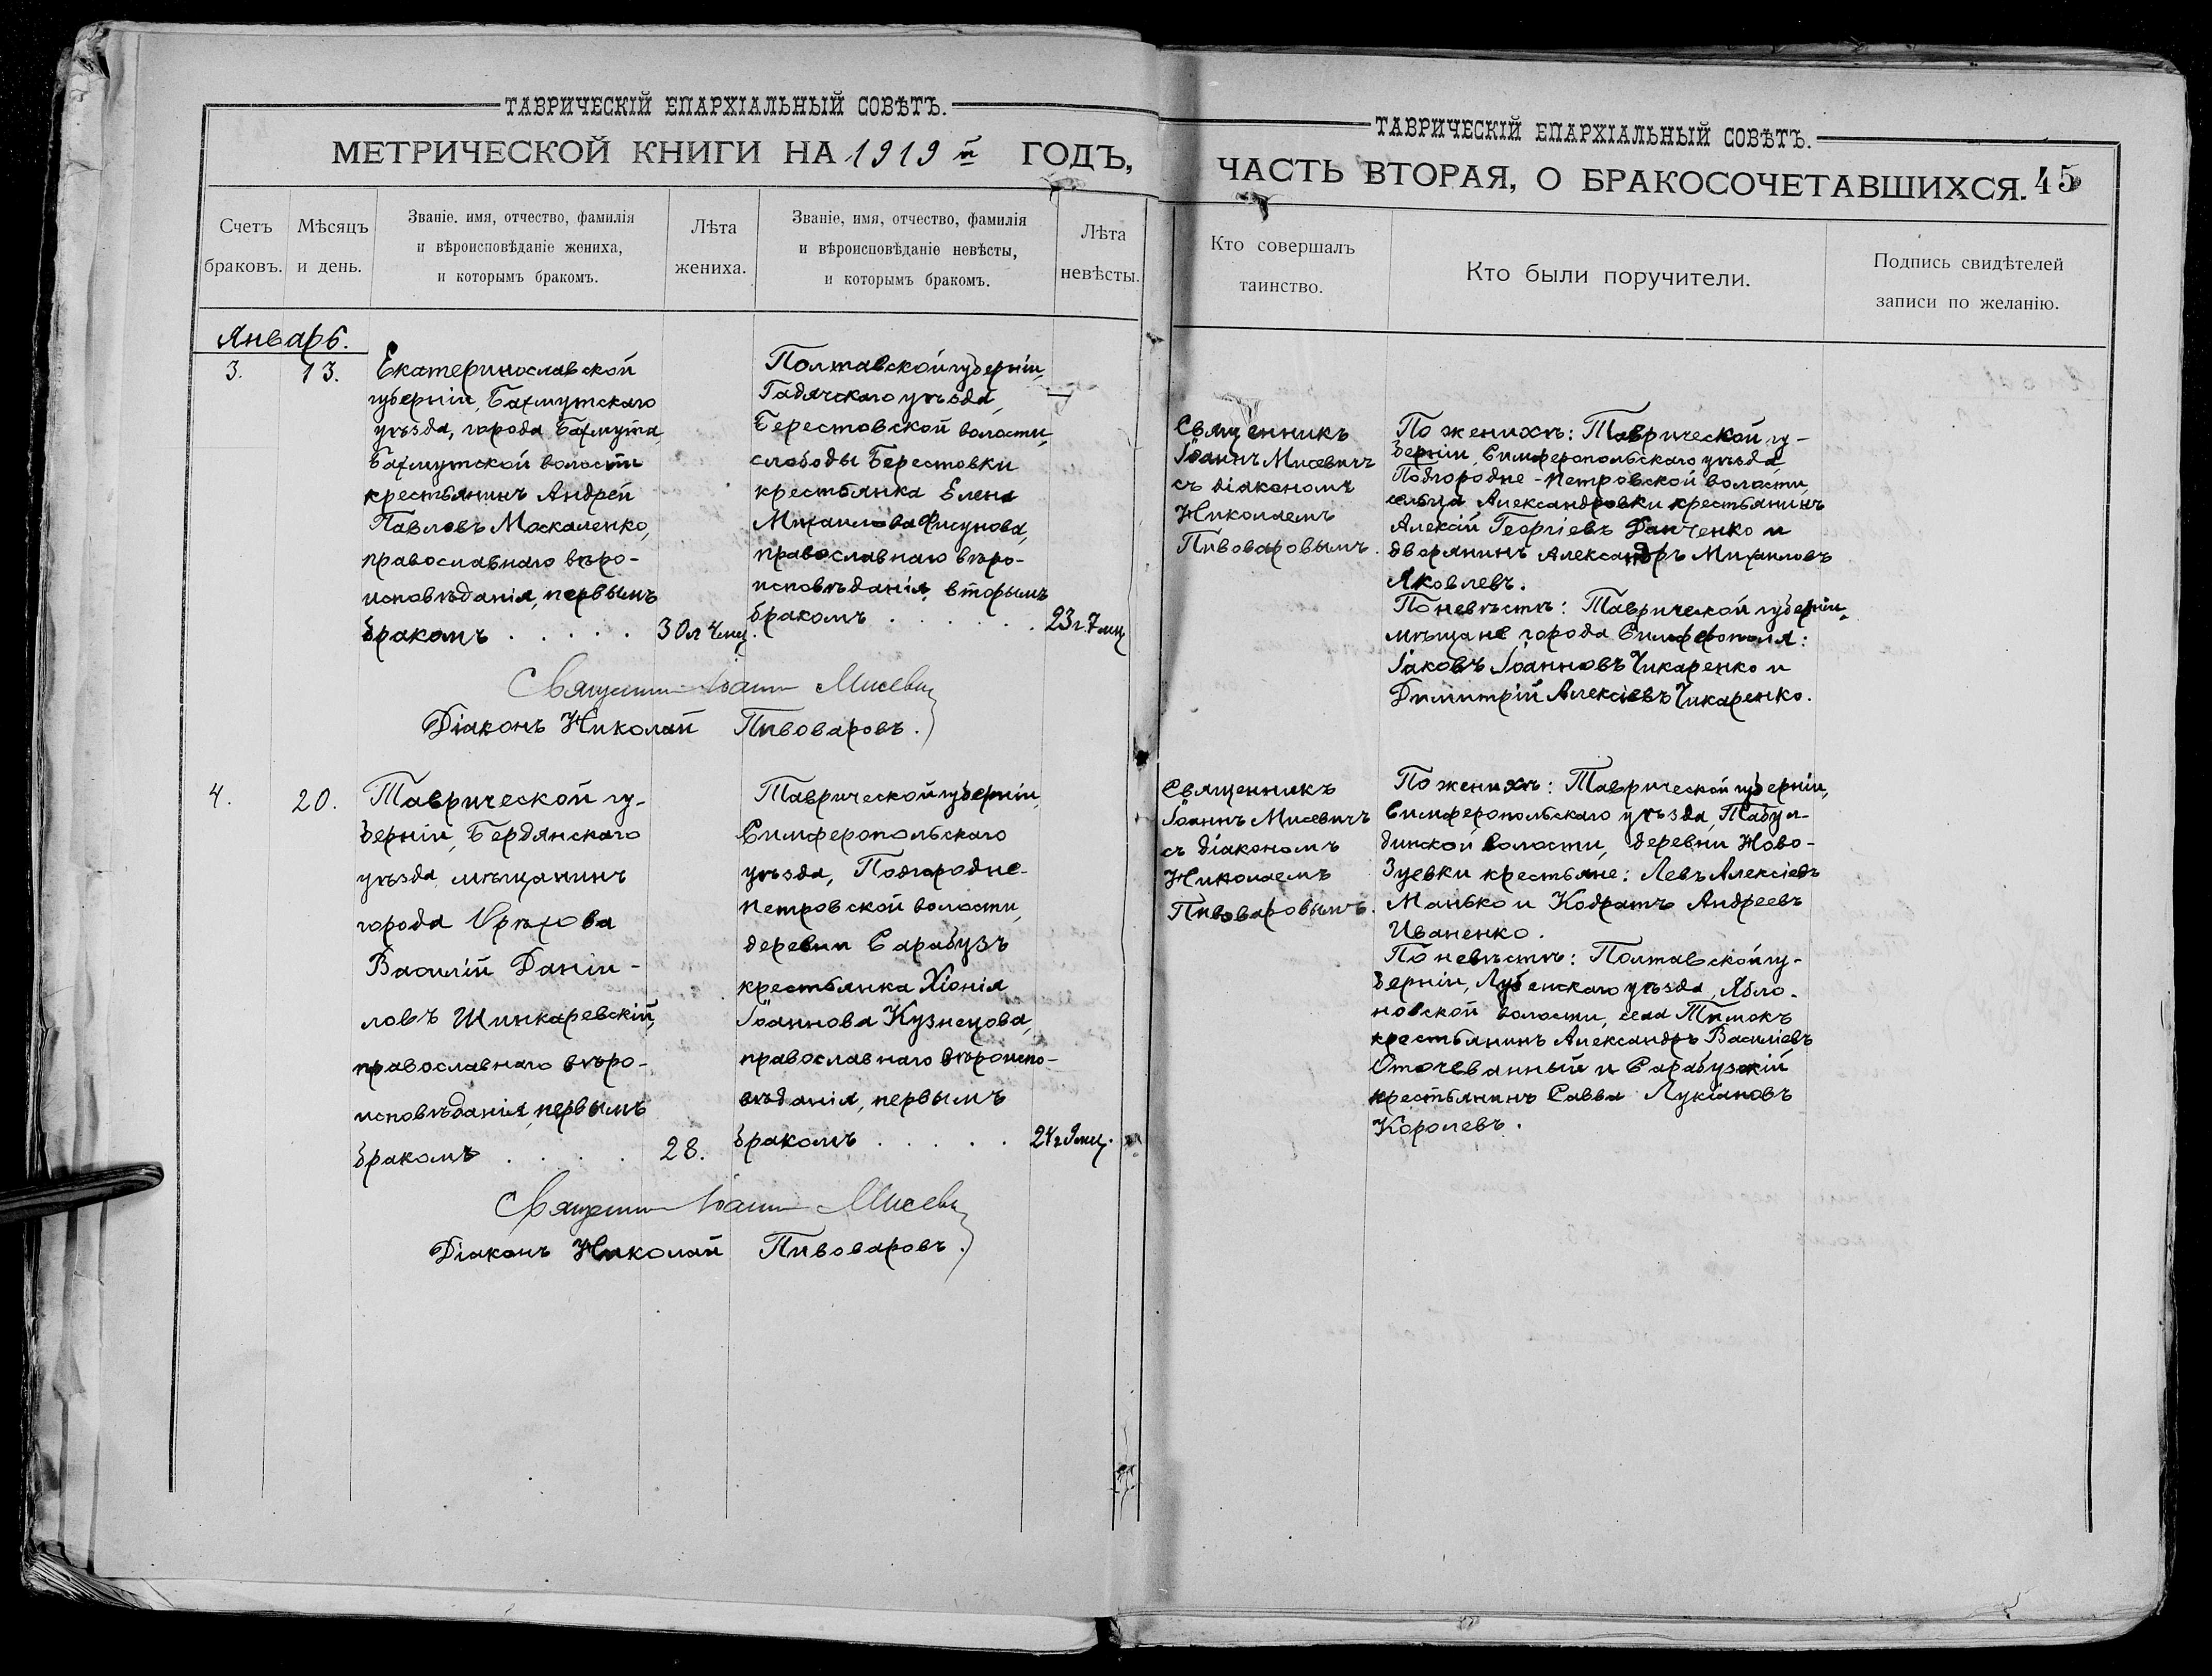 ТАВРИЧЕСКІЙ ЕПАРХІАЛЬНЫЙ СОВѢТЪ.
МЕТРИЧЕСКОЙ КНИГИ НА 1919й ГОДЪ,
Счетъ браковъ.
Мѣсяцъ и день.
Званіе. имя, отчество, фамилія
и вѣроисповѣданіе жениха,
и которымъ бракомъ.
Лѣта
жениха.
Званіе, имя, отчество, фамилія
и вѣроисповѣданіе невѣсты,
и которымъ бракомъ.
Лѣта
невѣсты.
Январь.
3.
13.
Екатеринославской
губерніи, Бахмутскаго
уѣзда, города Бахмута,
Бахмутской волости
крестьянинъ Андрей
Павловъ Москаленко,
православнаго вѣро-
исповѣданія, первымъ
бракомъ . . . . .
30 л 4 мц.
Полтавской губерніи,
Гадячскаго уѣзда,
Берестовской волости,
слободы Берестовки
крестьянка Елена
Михаилова Фисунова,
православнаго вѣро-
исповѣданія, вторымъ
бракомъ . . . . . .
23 г 7 мц
Священникъ Іоаннъ Мисевич
Діаконъ Николай Пивоваровъ.
4.
20.
Таврической гу-
берніи, Бердянскаго
уѣзда, мѣщанинъ
города Орѣхова
Василій Даніи-
ловъ Шинкаревскій,
православнаго вѣро-
исповѣданія, первымъ
бракомъ . . . .
28.
Таврической губерніи,
Симферопольскаго
уѣзда, Подгородне-
Петровской волости,
деревни Сарабузъ
крестьянка Хіонія
Іоаннова Кузнецова,
православнаго вѣроиспо-
вѣданія, первымъ
бракомъ . . . . .
24 г 9 мц.
Священникъ Іоаннъ Мисевич
Діаконъ Николай Пивоваровъ.
ТАВРИЧЕСКІЙ ЕПАРХІАЛЬНЫЙ СОВѢТЪ.
ЧАСТЬ ВТОРАЯ, О БРАКОСОЧЕТАВШИХСЯ. 45
Кто совершалъ
таинство.
Кто были поручители.
Подпись свидѣтелей
записи по желанію.
Священникъ
Іоаннъ Мисевичъ
съ діакономъ
Николаемъ
Пивоваровымъ.
По женихѣ: Таврической гу-
берніи, Симферопольскаго уѣзда
Подгородне-Петровской волости,
сельца Александровки крестьянинъ
Алексій Георгіевъ Данченко и
дворянинъ Александръ Михаиловъ
Яковлевъ.
По невѣстѣ: Таврической губерніи,
мѣщане города Симферополя:
Іаковъ Іоанновъ Чикаренко и
Димитрій Алексіевъ Чикаренко.
Священникъ
Іоаннъ Мисевичъ
съ діакономъ
Николаемъ
Пивоваровымъ.
По женихѣ: Таврической губерніи,
Симферопольскаго уѣзда, Табул-
динской волости, деревни Ново-
Зуевки крестьяне: Левъ Алексіевъ
Манько и Кодратъ Андреевъ
Иваненко.
По невѣстѣ: Полтавской гу-
берніи, Лубенскаго уѣзда, Ябло-
новской волости, села Тимокъ
крестьянинъ Александръ Василіевъ
Оточеванный и Сарабузскій
крестьянинъ Савва Лукіановъ
Королевъ.